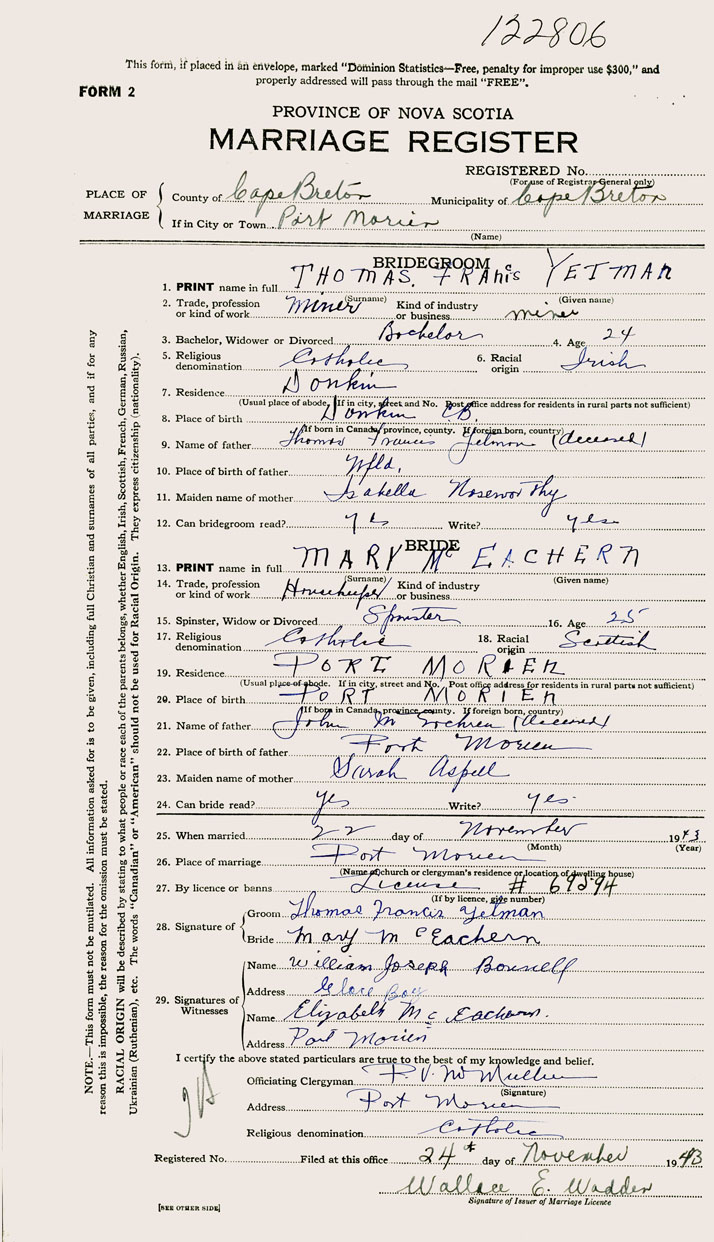 122806
This form, if placed in an envelope, marked "Dominion Statistics—Free, penalty for improper use $300," and
properly addressed will pass through the mail "FREE".
FORM 2
PROVINCE OF NOVA SCOTIA
MARRIAGE REGISTER
REGISTERED No.
(For use of Registrar General only)
PLACE OF MARRIAGE
County of Cape Breton Municipality of Cape Breton
If in City or Town Port Morien
(Name)
BRIDEGROOM
1. PRINT name in full THOMAS. FRANcis YETMAN
(Surname) (Given name)
2. Trade, profession or kind of work miner Kind of industry or business miner
3. Bachelor, Widower or Divorced Bachelor 4. Age 24
5. Religious denomination Catholic 6. Racial origin Irish
7. Residence Donkin
(Usual place of abode. If in city, street and No. Post office address for residents in rural parts not sufficient)
8. Place of birth Donkin CB.
(If born in Canada, province, county. If foreign born, country)
9. Name of father Thomas Francis Yetman (deceased)
10. Place of birth of father Nfld.
11. Maiden name of mother Isabella Noseworthy
12. Can bridegroom read? yes Write? yes
BRIDE
13. PRINT name in full MARY Mc EACHERN
(Surname) (Given name)
14. Trade, profession or kind of work Housekeeper Kind of industry or business
15. Spinster, Widow or Divorced Spinster 16. Age 25
17. Religious denomination Catholic 18. Racial origin Scottish
19. Residence PORT MORIEN
(Usual place of abode. If in city, street and No. Post office address for residents in rural parts not sufficient)
20. Place of birth PORT MORIEN
(If born in Canada, province, county. If foreign born, country)
21. Name of father John (deceased)
22. Place of birth of father Port Morien
23. Maiden name of mother Sarah Aspell
24. Can bride read? yes Write? yes
25. When married 22 day of November 1943
(Month) (Year)
26. Place of marriage Port Morien
(Name of church or clergyman's residence or location of dwelling house)
27. By licence or banns License # 69594
(If by licence, give number)
28. Signature of
Groom Thomas Francis Yetman
Bride Mary McEachern
29. Signatures of Witnesses
Name William Joseph Bonnell
Address Glace Bay
Name Elizabeth McEachern.
Address Port Morien
I certify the above stated particulars are true to the best of my knowledge and belief.
Officiating Clergyman
(Signature)
Address Port Morien
Religious denomination Catholic
Registered No. Filed at this office 24th day of November 1943
Wallace E. Wadden
Signature of Issuer of Marriage Licence
[SEE OTHER SIDE]
NOTE.—This form must not be mutilated. All information asked for is to be given, including full Christian and surnames of all parties, and if for any
reason this is impossible, the reason for the omission must be stated.
RACIAL ORIGIN will be described by stating to what people or race each of the parents belongs, whether English, Irish, Scottish, French, German, Russian,
Ukrainian (Ruthenian), etc. The words "Canadian" or "American" should not be used for Racial Origin. They express citizenship (nationality).